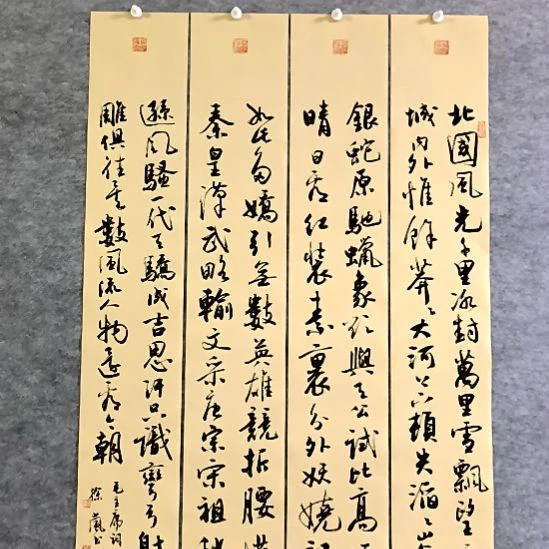 北國風光千里冰封萬里雪飄望
城內外惟餘莽々大河上下頓失滔々
銀蛇原馳蠟象欲與天公試比高
晴日看紅裝素裹分外妖嬈
如此多嬌引無數英雄競折腰
秦皇漢武略輸文采唐宗宋祖
遜風騷一代天驕成吉思汗只識彎弓射
雕俱往矣數風流人物還看今朝
毛主席詞